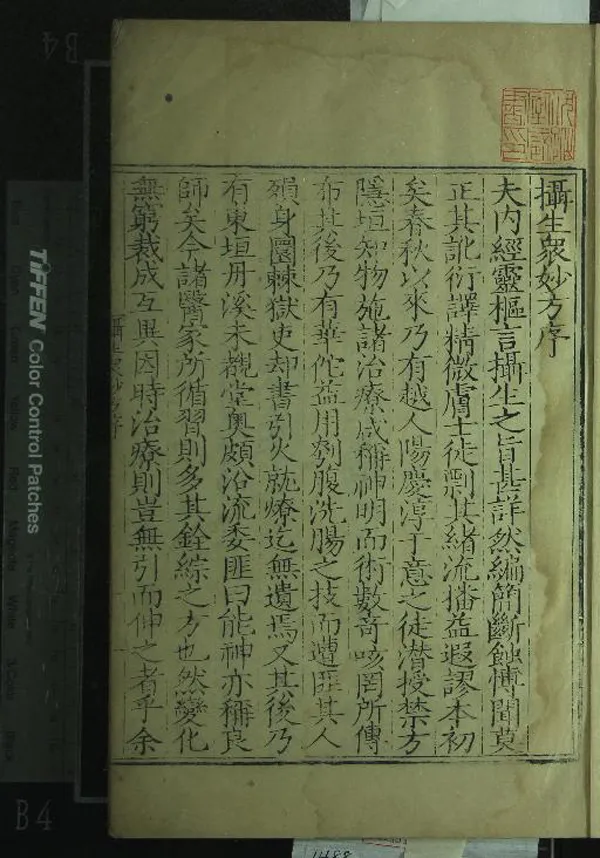 攝生衆妙方序
夫內經靈樞言攝生之旨甚詳然編簡斷蝕博聞莫
正其訛衍譯精微膚士徒剽其緒流播益遐謬本初
矣春秋以來乃有越人陽慶淳于意之徒潛授禁方
隱垣知物施諸治療咸稱神明而術數奇咳罔所傳
布其後乃有華佗益用刳腹洗腸之技而遭匪其人
殞身圜棘獄吏却書引火就燎迄無遺焉又其後乃
有東垣丹溪未覩堂奧頗沿流委匪曰能神亦稱良
師矣今諸醫家所循習則多其銓綜之方也然變化
無窮裁成互異因時治療則豈無引而伸之者乎余
攝生衆妙方序
TIFFEN Color Control Patches
B4
B4
1488